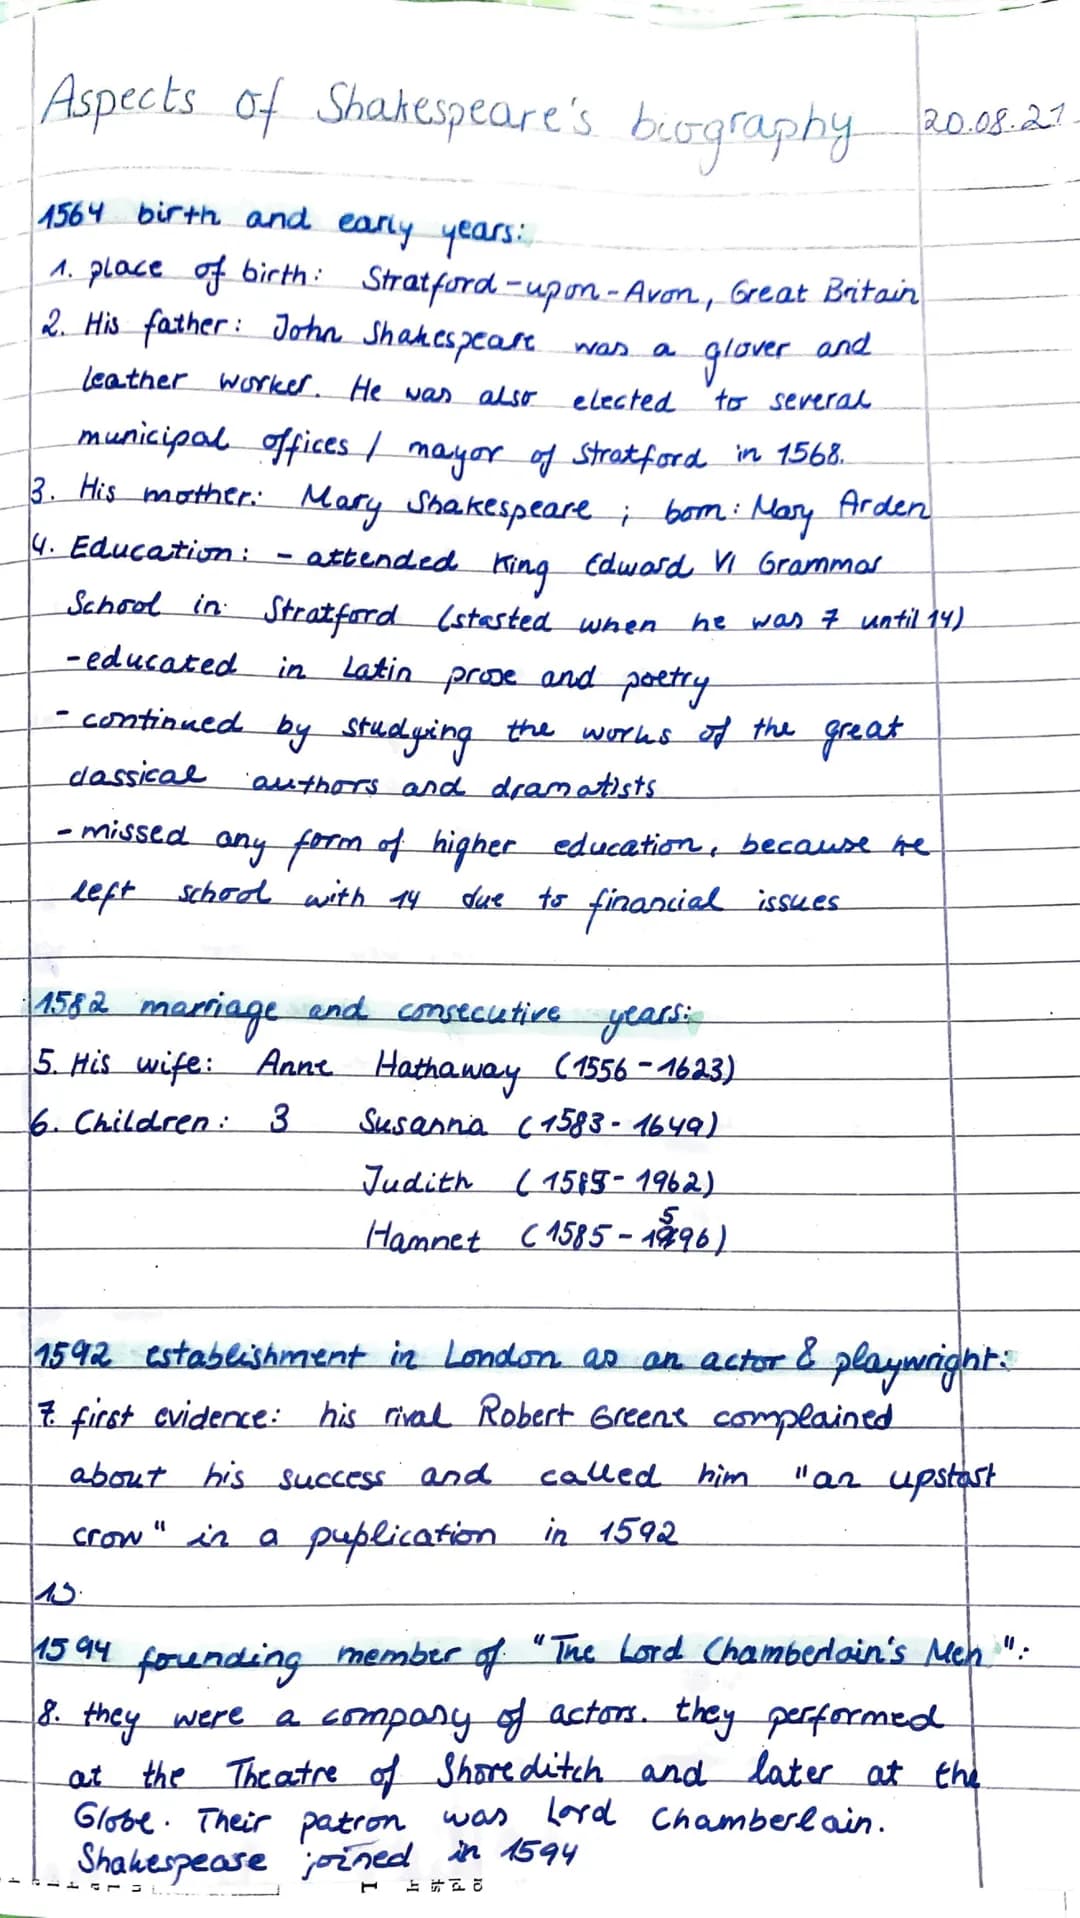 Aspects of Shakespeare's biography 20.08.21
1564 birth and early years:
1. place of birth: Stratford-upon-Avon, Great Britain
2. His father: John Shakespeare was a glover and
leather worker. He was also elected to several
municipal offices / mayor of Stratford in 1568.
3. His mother: Mary Shakespeare ; born: Mary Arden
4. Education: - attended King Edward VI Grammar
School in Stratford (started when he was 7 until 14)
- educated in Latin prose and poetry
- continued by studying the works of the great
classical authors and dramatists
- missed any form of higher education, because he
left school with 14 due to financial issues
1582 marriage and consecutive years:
5. His wife: Anne Hathaway (1556-1623)
6. Children: 3 Susanna (1583-1649)
Judith (1585-1962)
Hamnet (1585-1596)
1592 establishment in London as an actor & playwright:
7. first evidence: his rival Robert Greene complained
about his success and called him "an upstart
crow" in a puplication in 1592
1594 founding member of "The Lord Chamberlain's Men":
8. they were a company of actors. they performed
at the Theatre of Shoreditch and later at the
Globe. Their patron was Lord Chamberlain.
Shakespeare joined in 1594